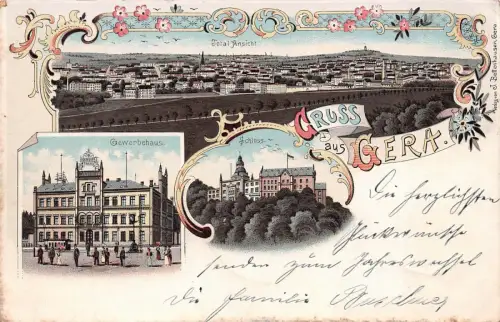 Total-Ansicht
Gewerbehaus.
Schloss
GRUSS
aus GERA.
Die herzlichsten
Glückwünsche
senden zum Jahreswechsel
Die Familie